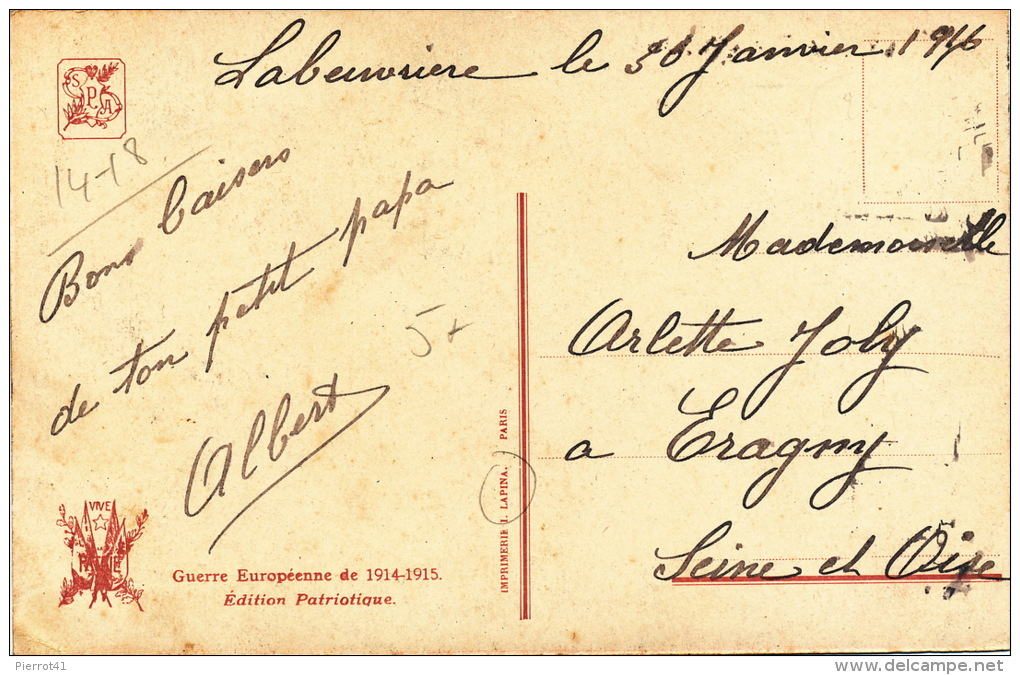 Labeuvriere le 30 Janvier 1916
S P A
14-18
Bons baisers
de ton petit papa
Albert
5+
Mademoiselle
Arlette Joly
a Eragny
Seine et Oise
IMPRIMERIE I. LAPINA. PARIS
VIVE
PATRIE
Guerre Européenne de 1914-1915.
Édition Patriotique.
Pierrot41
www.delcampe.net